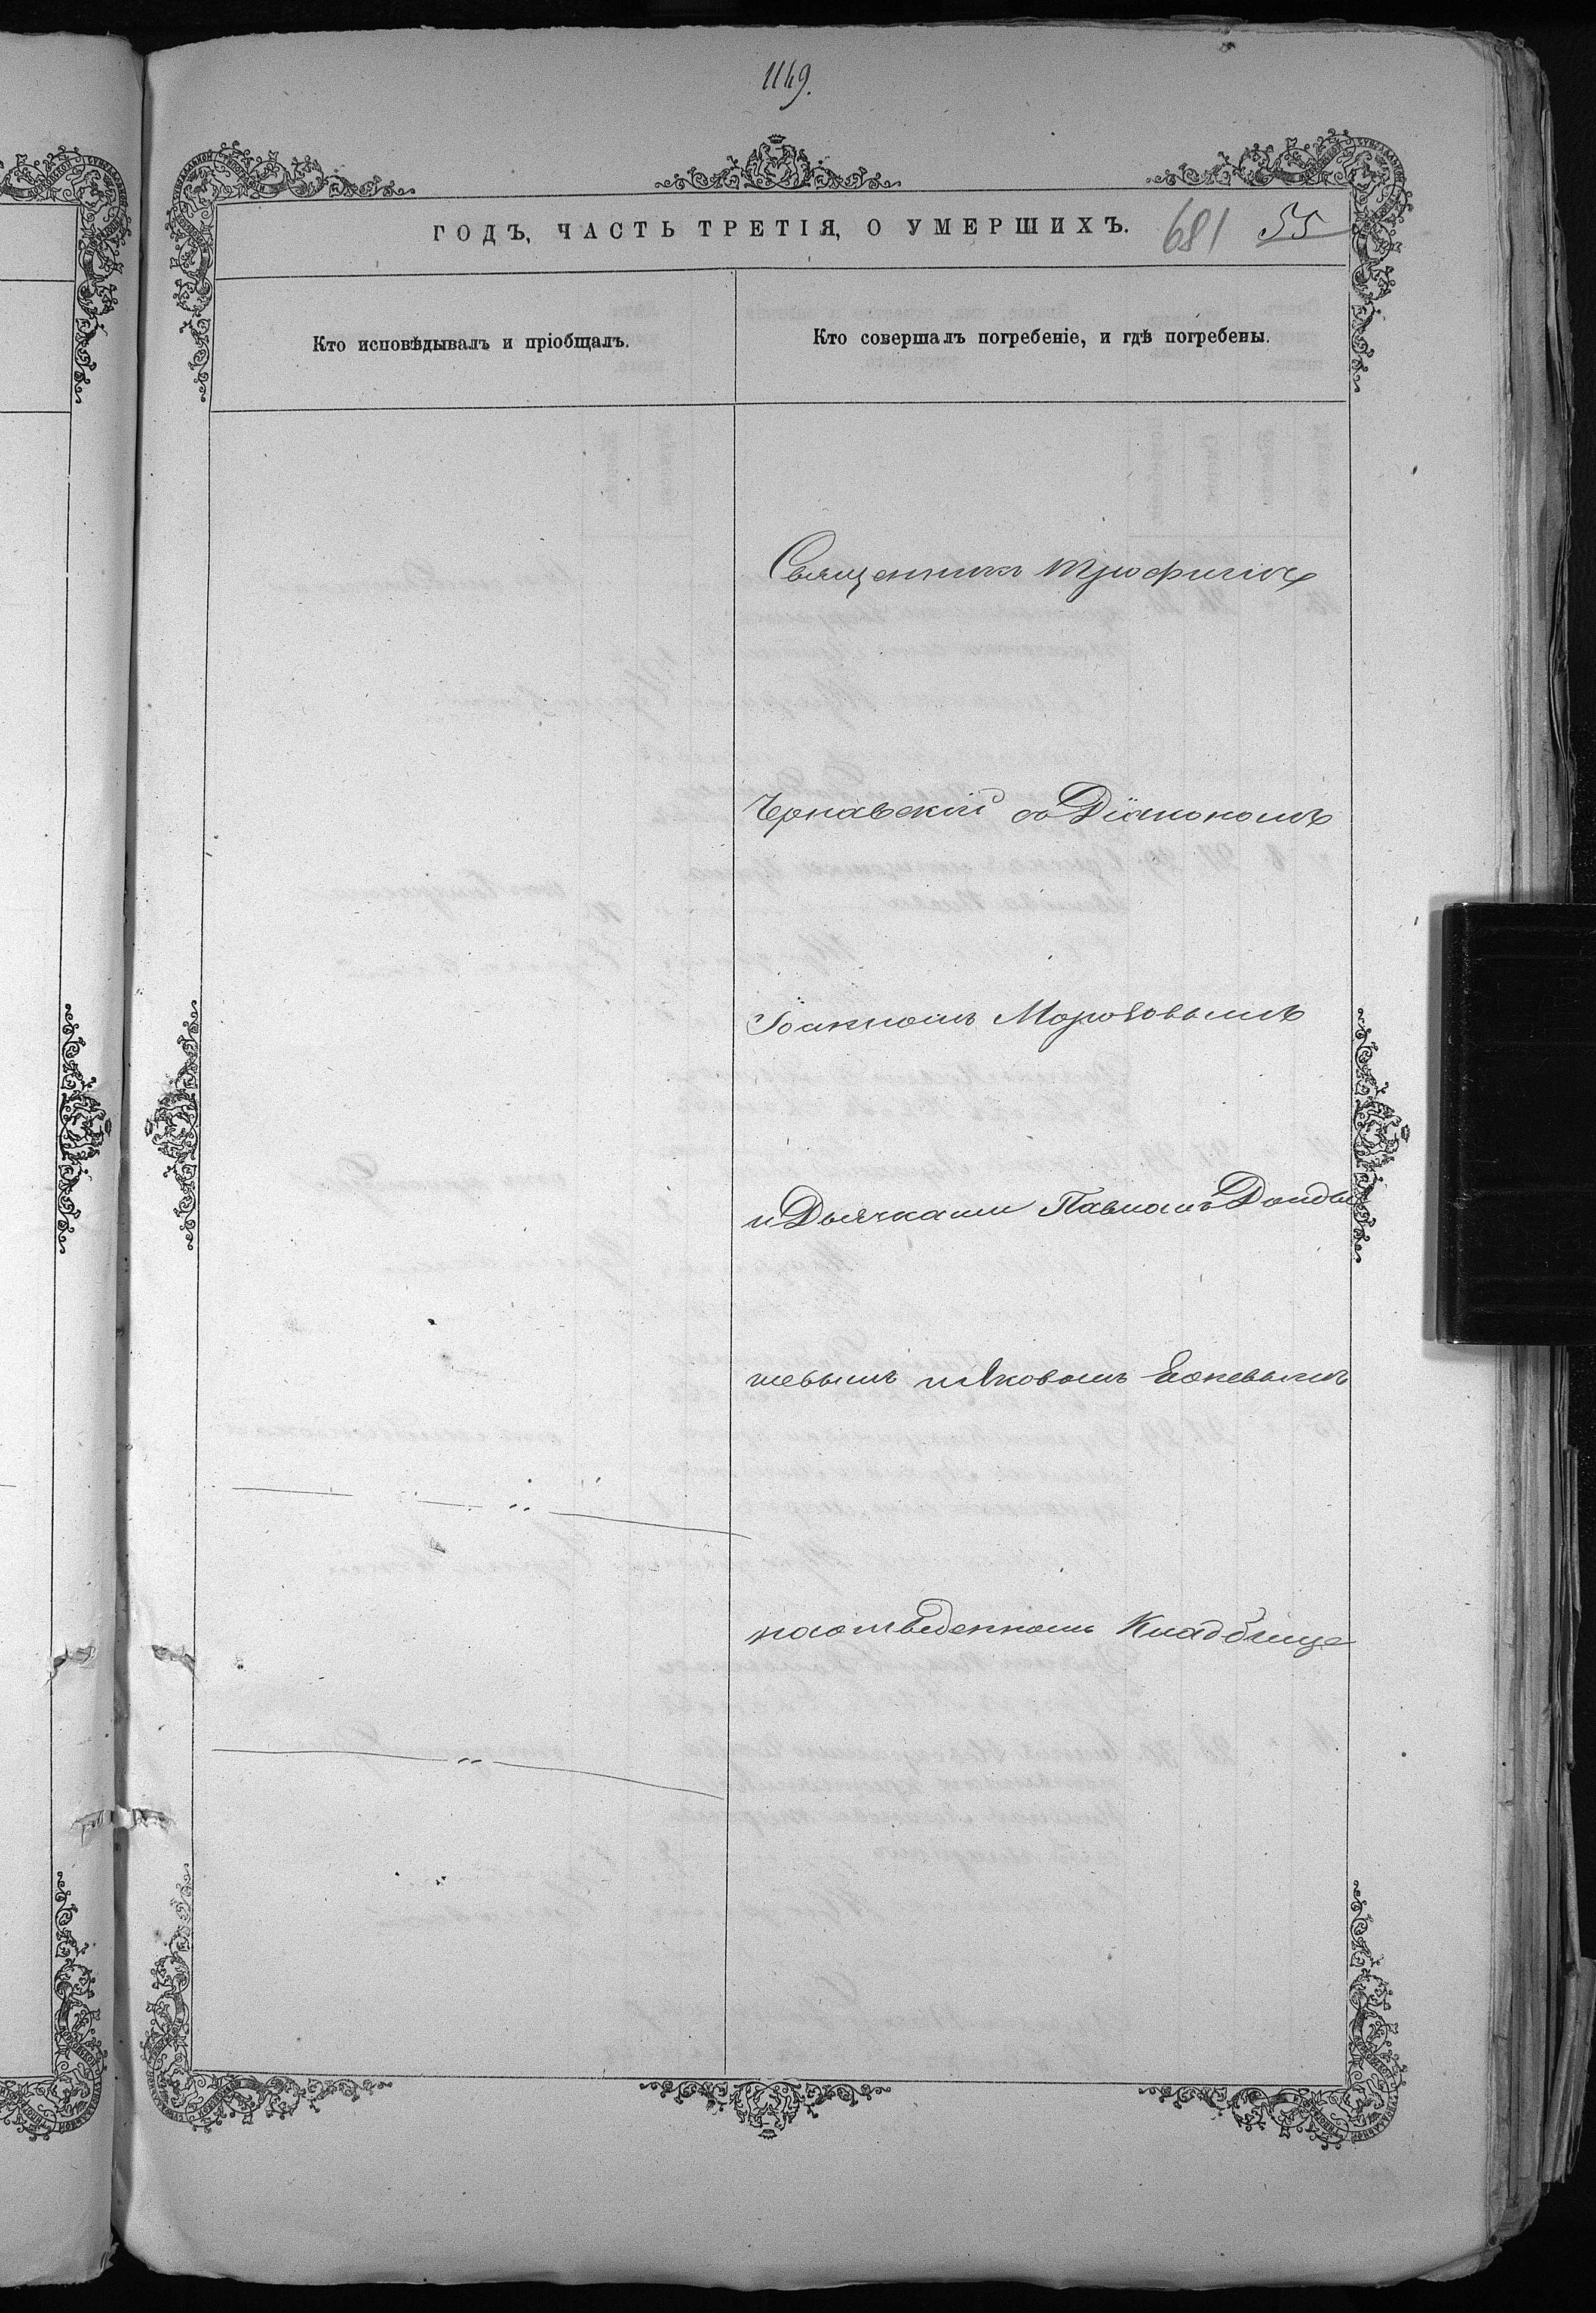 1149.
ГОДЪ, ЧАСТЬ ТРЕТІЯ, О УМЕРШИХЪ. 681 55
Кто исповѣдывалъ и пріобщалъ.
Кто совершалъ погребеніе, и гдѣ погребены.
Священникъ Трофимъ
Чернавскій съ Діакономъ
Іоанномъ Морозовымъ
и Дьячками Павломъ
шевымъ и Яковомъ
на отведенномъ Кладбище